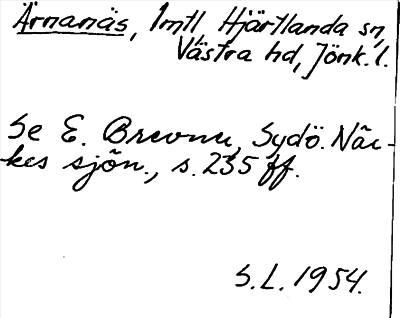 Ärnanäs, Imtl, Hjärtlanda sn,
Västra hd, Jönk. l.
Se E. Brevner, Sydö. När-
kes sjön., s. 235 ff.
S.L. 1954.